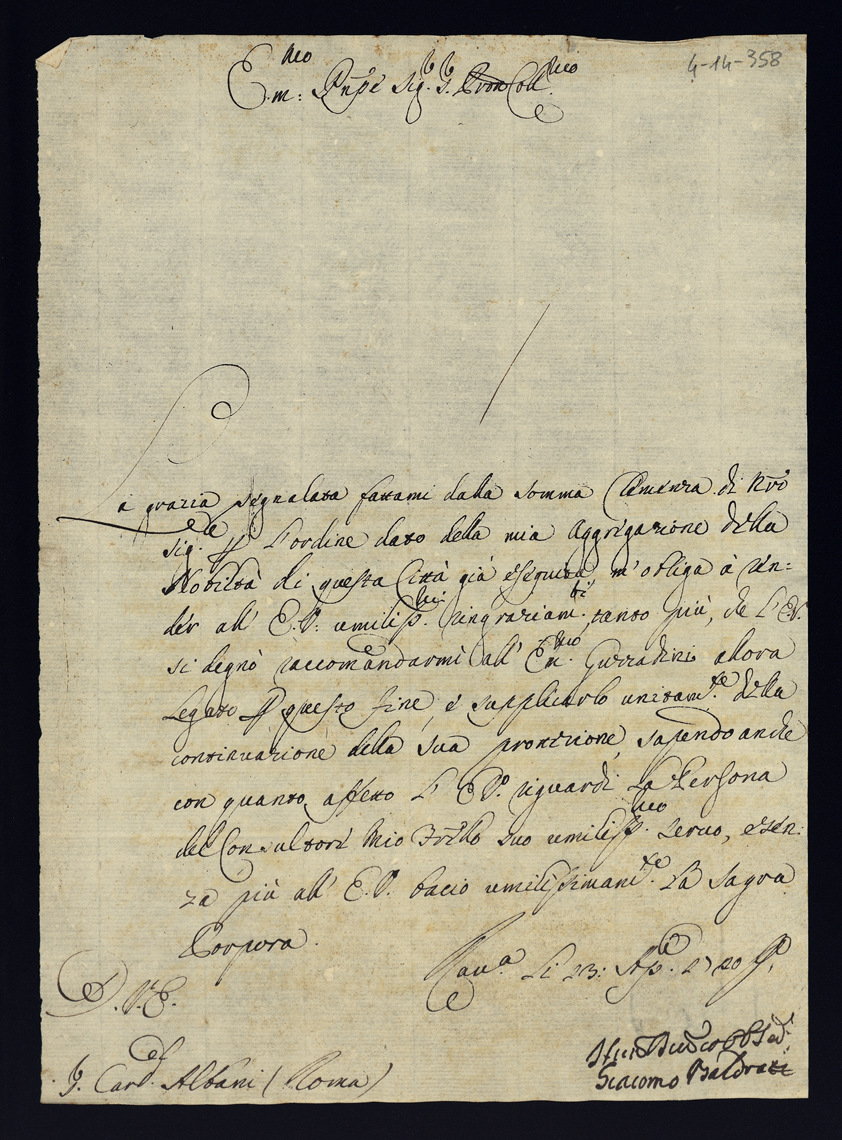 4-14-358
Em:mo Pnpe Sig.r G. Pron Coll.mo
La grazia segnalata fattami dalla somma Clemenza di Nro
Sig.re p L'ordine dato della mia Aggregazione della
Nobiltà di questa Città già eseguita m'obliga à ren=
der all' E.V. umiliss.mi ringraziam.ti tanto più, che L'E.V.
si degnò raccomandarmi all' Em.mo Gozzadini allora
Legato p questo fine, e supplicarlo unitam.te della
continuazione della sua protezione, sapendo anche
con quanto affetto L'E.V. riguardi La Persona
del Consultore mio Frello suo umiliss.mo servo, e sen:
za più all' E.V. bacio umilissimam.te La Sagra
Porpora.
Rav.a Li 23: Ap.le 1720
D. V. E.
G. Card. Albani (Roma)
Giacomo Baldrati